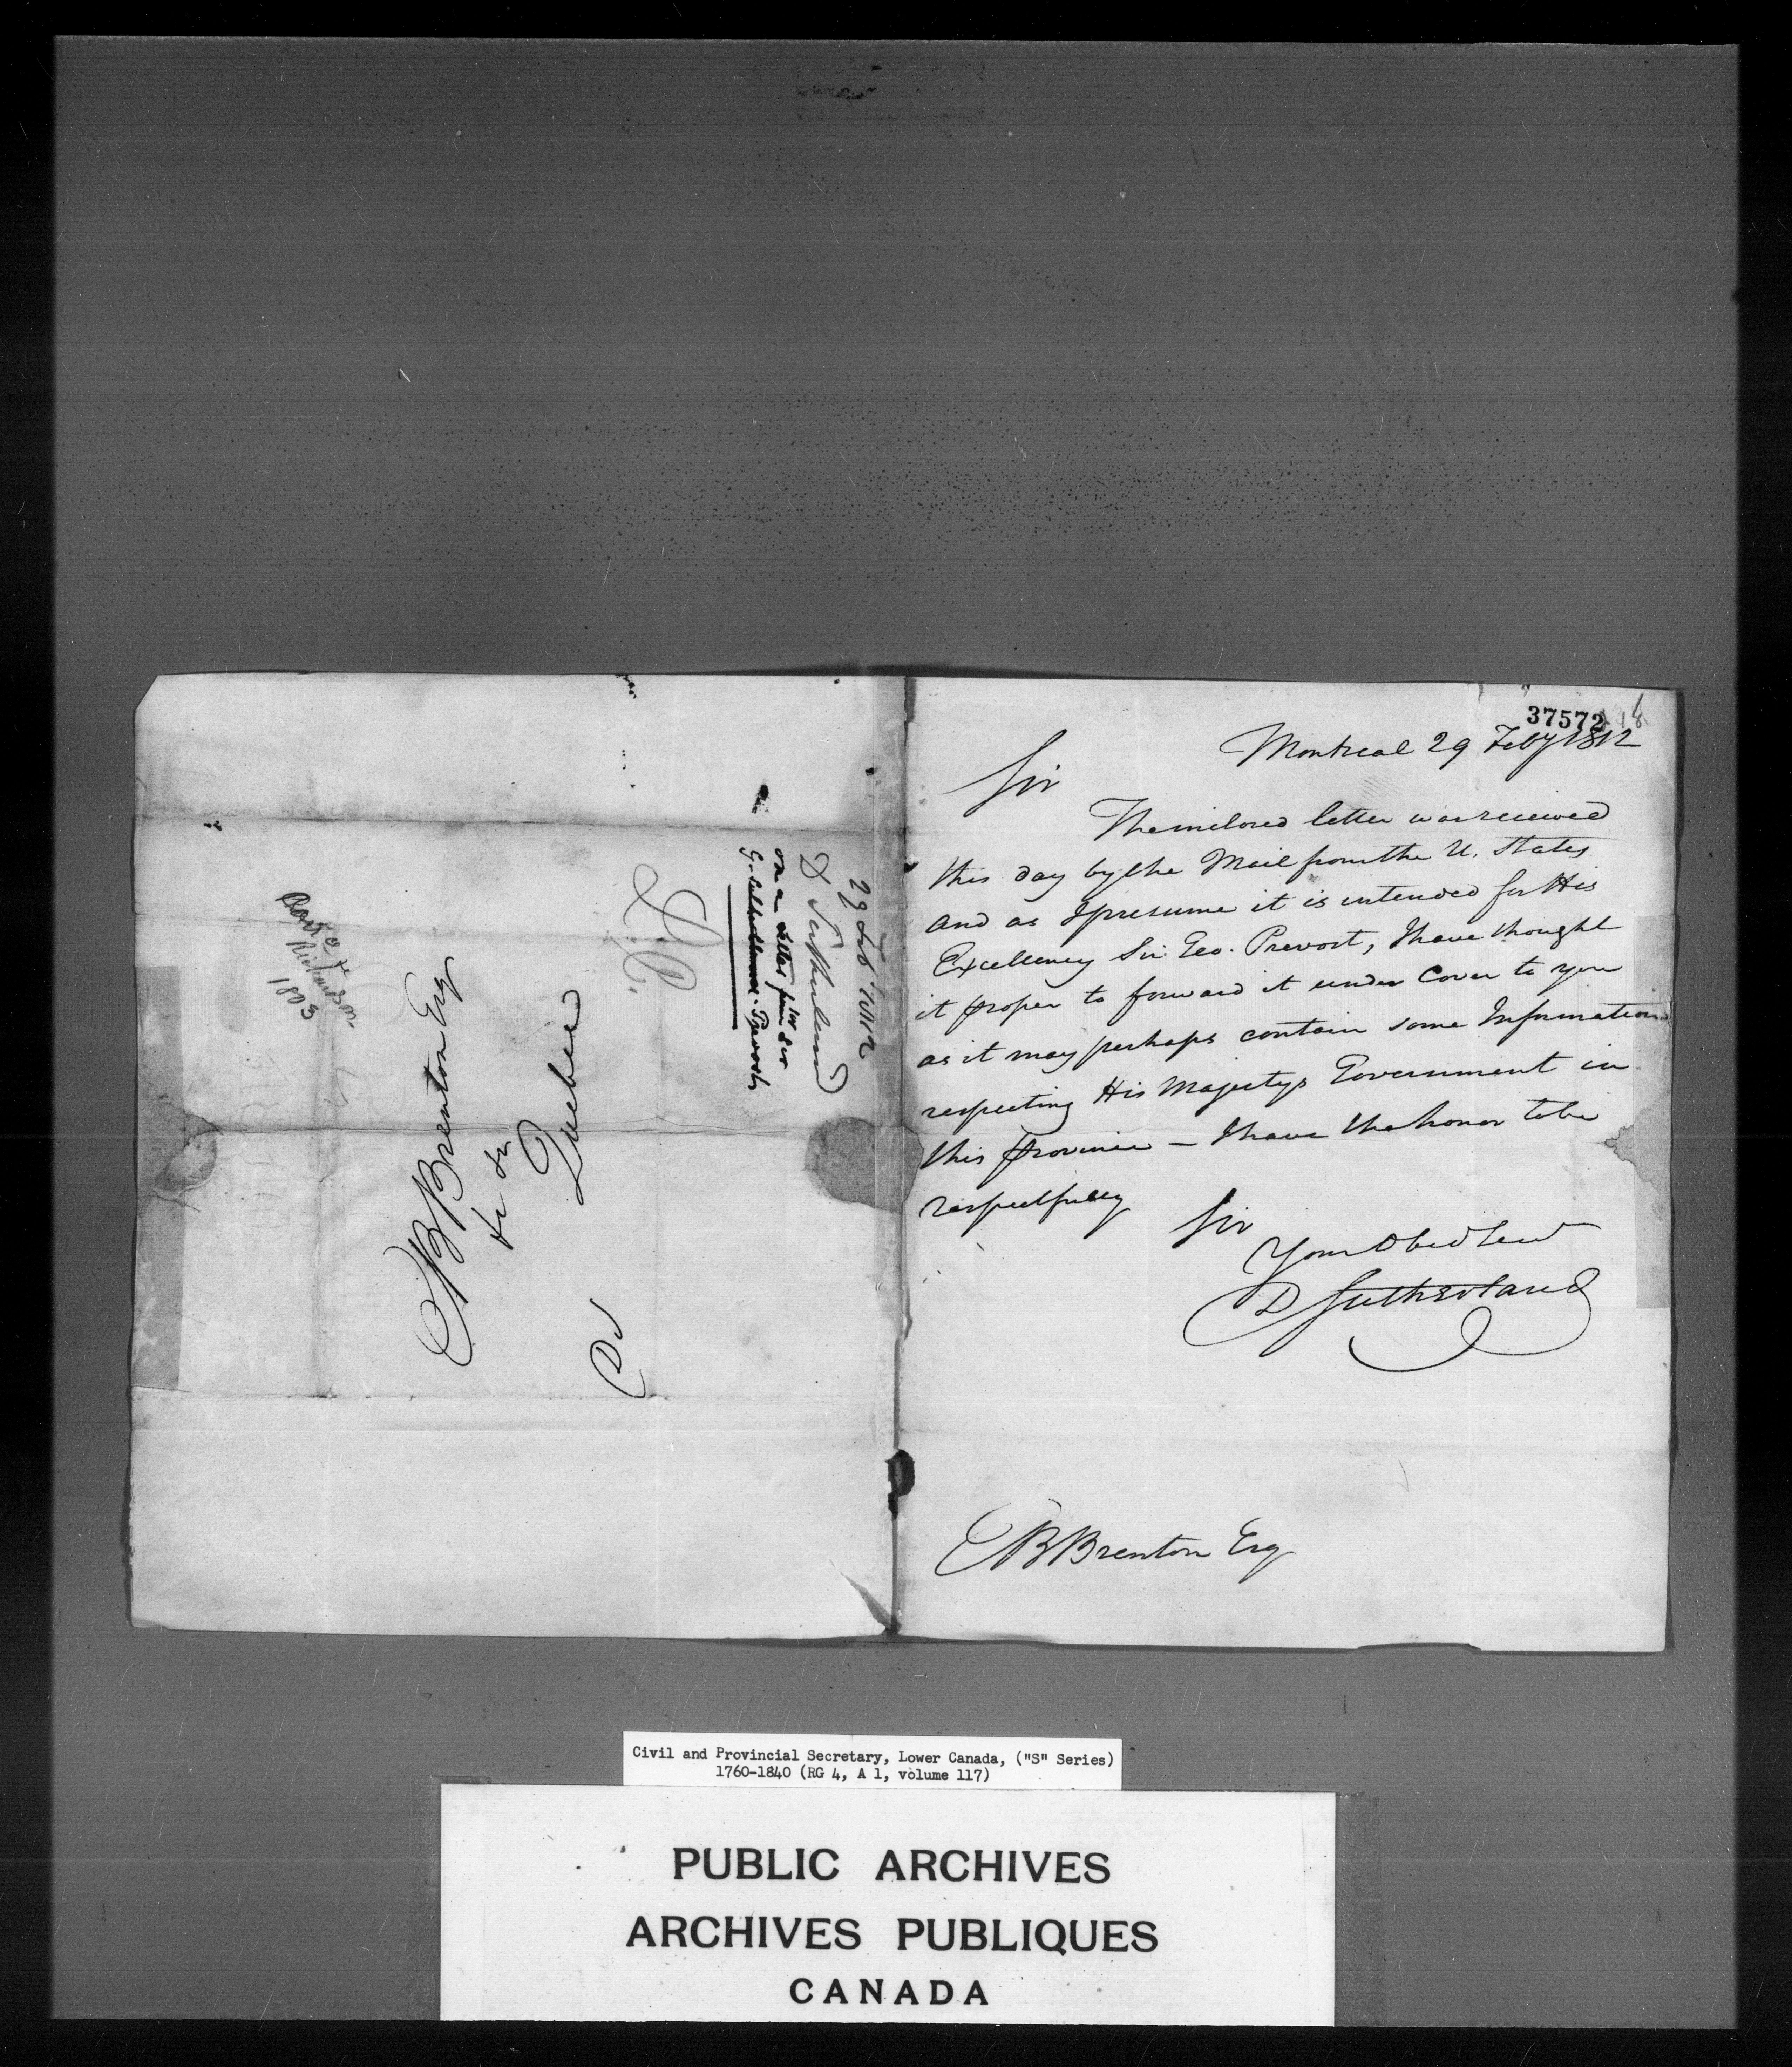 37572
18
Montreal 29 Feby 1812
Sir
The inclosed letter was received
this day by the Mail from the U. States
and as I presume it is intended for His
Excellency Sir Geo. Prevost, I have thought
it proper to forward it under Cover to you
as it may perhaps contain some Information
respecting His Majestys Government in
this province – I have the honor to be
respectfully
Sir
Your Obed Servt
D Sutherland
EB Brenton Esq
29 Feb 1812
D Sutherland
on a Letter for Sir
G. Prevost
EB Brenton Esq
&c &c
Quebec
Richardson
1803
Civil and Provincial Secretary, Lower Canada, ("S" Series)
1760-1840 (RG 4, A 1, volume 117)
PUBLIC ARCHIVES
ARCHIVES PUBLIQUES
CANADA